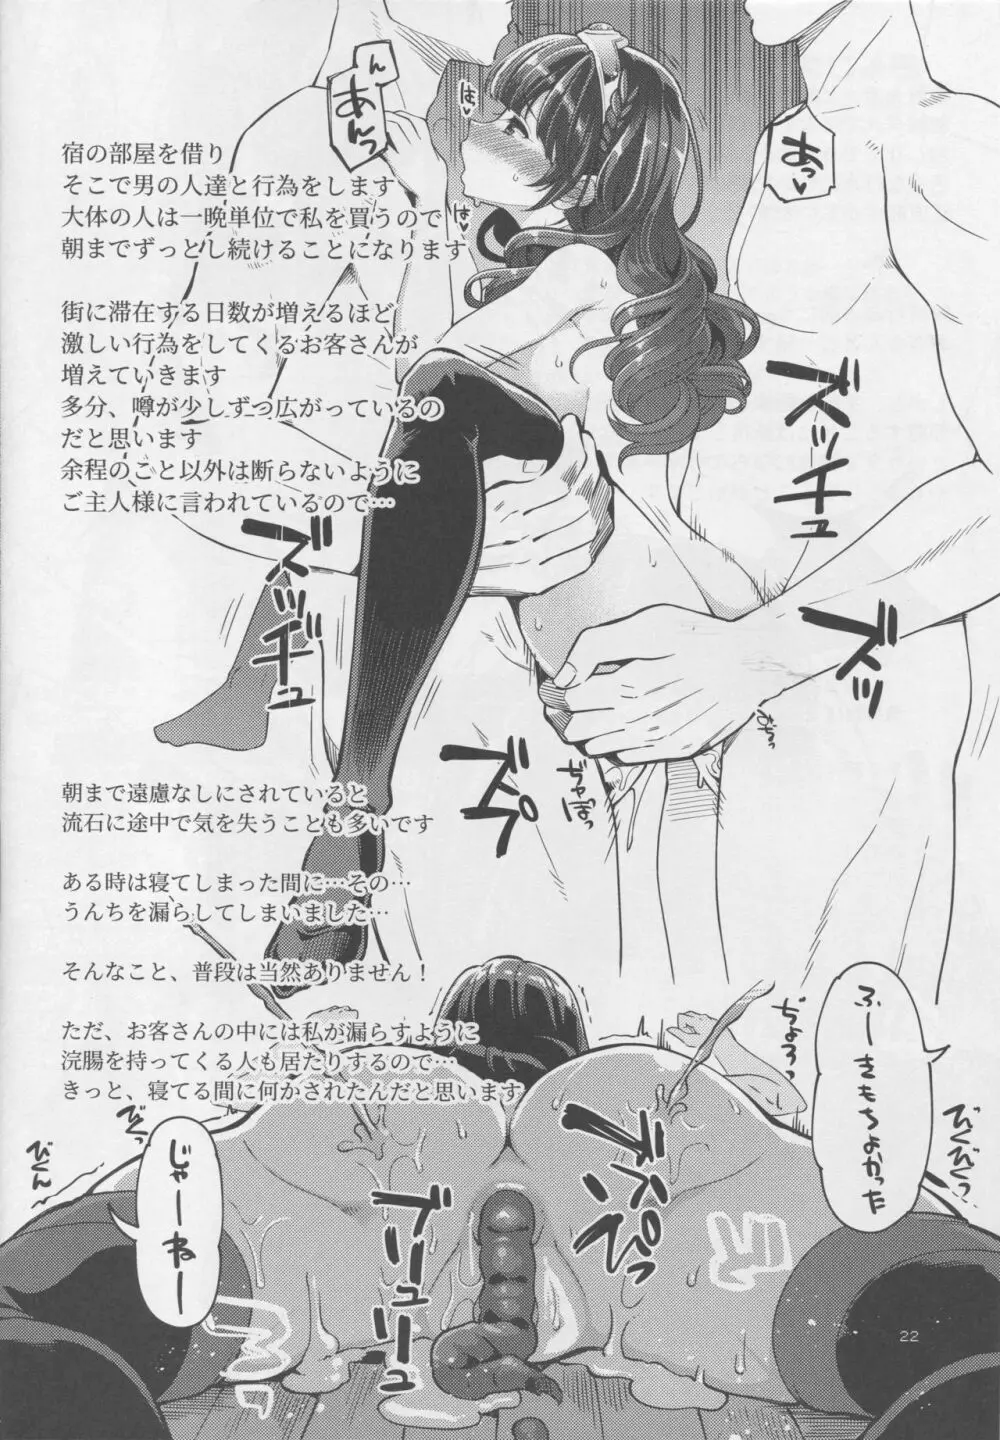 宿の部屋を借り
そこで男の人達と行為をします
大体の人は一晩単位で私を買うので
朝までずっとし続けることになります
街に滞在する日数が増えるほど
激しい行為をしてくるお客さんが
増えていきます
多分、噂が少しずつ広がっているの
だと思います
余程のこと以外は断らないように
ご主人様に言われているので…
んっ
あんっ
はぁ♥
はぁ♥
あっ♥
ズッチュ
ズッヂュ
ズッ
ズプ
ぢゅぽっ
朝まで遠慮なしにされていると
流石に途中で気を失うことも多いです
ある時は寝てしまった間に…その…
うんちを漏らしてしまいました…
そんなこと、普段は当然ありません！
ただ、お客さんの中には私が漏らすように
浣腸を持ってくる人も居たりするので…
きっと、寝てる間に何かされたんだと思います
ふーきもちよかった
じゃーねー
ぢょろっ
びくびくっ
びくっ
びくんっ
ブリュリュ
22